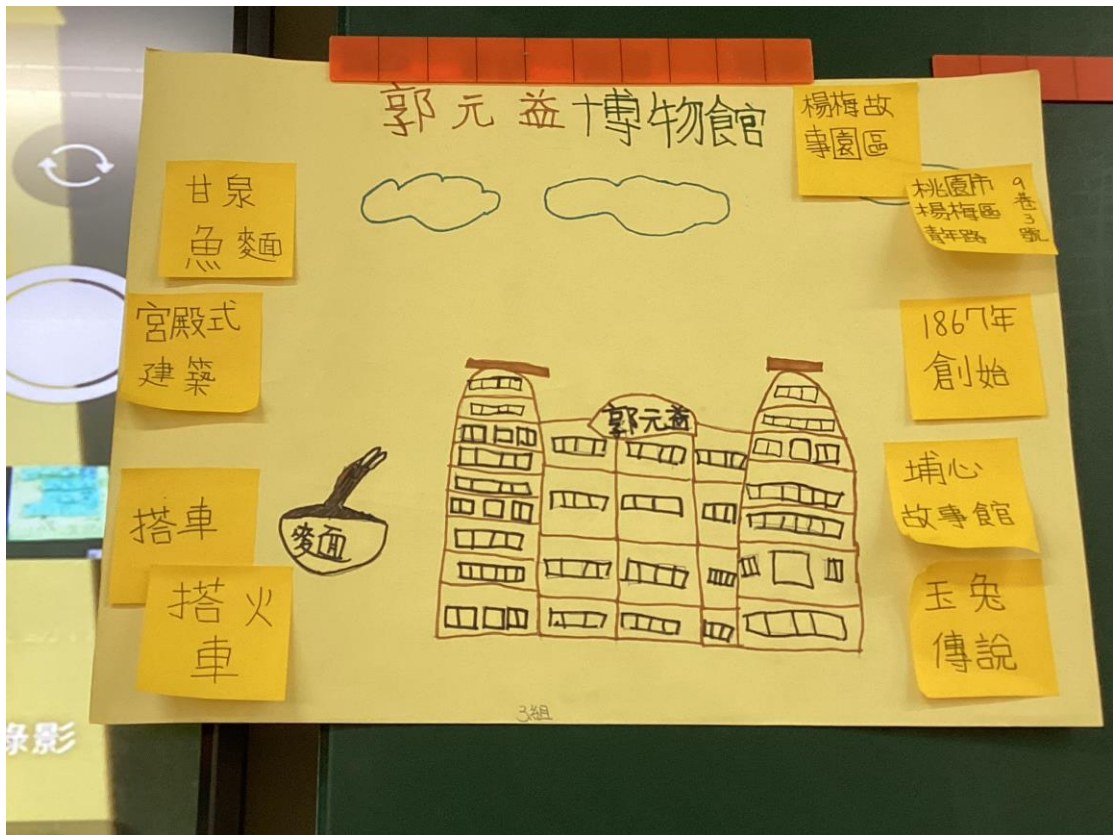 郭元益博物館
楊梅故
事園區
桃園市
楊梅區
青年路
9巷3號
甘泉
魚麵
宮殿式
建築
1867年
創始
郭元益
埔心
故事館
搭車
麥面
搭火
車
玉兔
傳說
3組
錄影